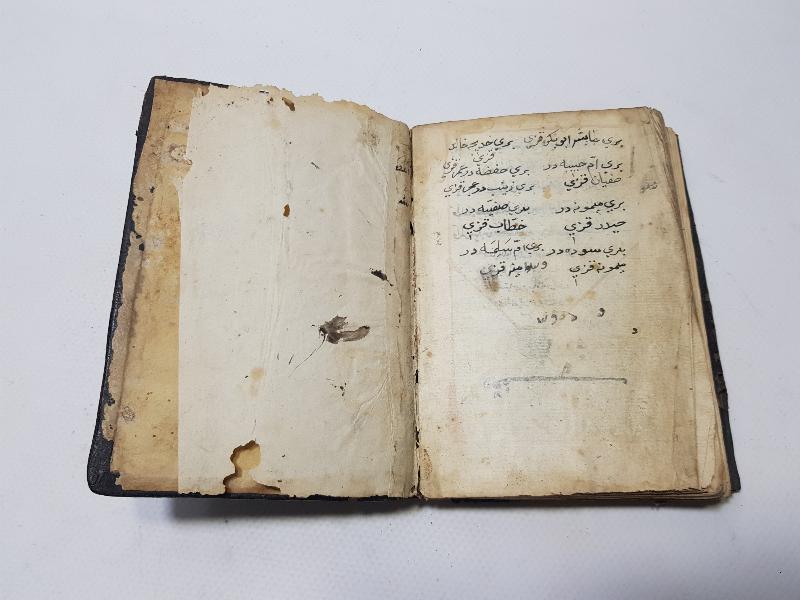 بري عايشه ابو بكر قزي بري خديجه خالد
قزي
بري ام حبيبه در بري حفصه در عمر قزي
صفيان قزي بري زينب در عمر قزي
بري ميمونه در بري صفيه در
حيدر قزي خطاب قزي
بري سوده در بري ام سلمه در
ميمونه قزي قزي